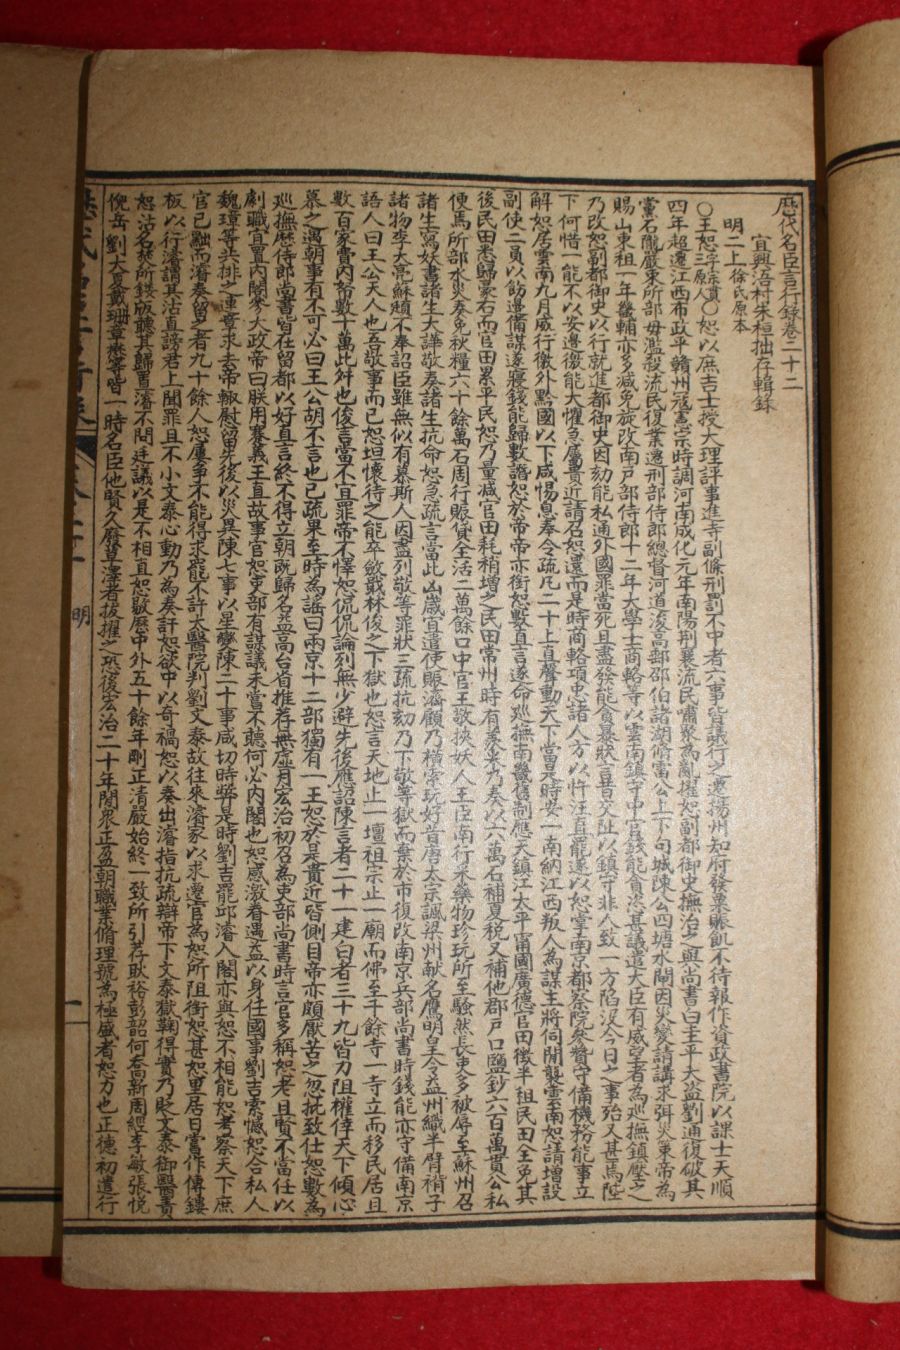 歷代名臣言行錄卷二十二
宜興浯村朱桓拙存輯錄
明二上徐氏原本
〇王恕字宗貫三原人〇恕以庶吉士授大理評事進寺副條刑罰不中者六事皆議行之遷揚州知府發粟賑飢不待報作資政書院以課士天順
四年超遷江西布政平贛州寇憲宗時調河南成化元年南陽荆襄流民嘯聚為亂擢恕副都御史撫治之與尚書白圭平大盜劉通復破其
黨石龍嚴束所部毋濫殺流民復業遷刑部侍郎總督河道浚高郵邵伯諸湖脩雷公上下句城陳公四塘水閘因災變請講求弭災策帝為
賜山東租一年畿輔亦多減免旋改南戶部侍郎十二年大學士商輅等以雲南鎮守中官錢能貪恣甚議遣大臣有威望者為巡撫鎮壓之
乃改恕副都御史以行就進都御史因劾能私通外國罪當死且盡發能貪暴狀言昔交趾以鎮守非人致一方陷沒今日之事殆又甚焉陛
下何惜一能不以安邊徼能大懼急屬貴近請召恕還而是時商輅項忠諸人方以忤汪直罷遂以恕掌南京都察院參贊守備機務能事立
解恕居雲南九月威行徼外黔國以下咸惕息奉令疏凡二十上直聲動天下當是時安一南納江西叛人為謀主將伺閒襲雲南恕請增設
副使二員以飭邊備謀遂寢錢能歸數譖恕於帝帝亦銜恕數直言遂命巡撫南畿舊制應天鎮江太平甯國廣德官田徵半租民田全免其
後民田悉歸豪右而官田累平民恕乃量減官田耗稍增之民田常州時有羨米乃奏以六萬石補夏稅又補他郡戶口鹽鈔六百萬貫公私
便焉所部水災奏免秋糧六十餘萬石周行賑貸全活二萬餘口中官王敬挾妖人王臣南行采藥物珍玩所至騷然長吏多被辱至蘇州召
諸生寫妖書諸生大譁敬奏諸生抗命恕急疏言當此凶歲宜遣使賑濟顧乃橫索玩好昔唐太宗諷梁州献名鷹明皇令益州織半臂褙子
諸物李大亮蘇頲不奉詔臣雖無似有慕斯人因盡列敬等罪狀三疏抗劾乃下敬等獄而棄於市復改南京兵部尚書時錢能亦守備南京
語人曰王公天人也吾敬事而已恕坦懷待之能卒斂戢林俊之下獄也恕言天地止一壇祖宗止一廟而佛至千餘寺一寺立而移民居且
數百家費內帑數十萬此舛也俊言當不宜罪帝不懌恕侃侃論列無少避先後應詔陳言者二十一建白者三十九皆力阻權倖天下傾心
慕之遇朝事有不可必曰王公胡不言也已疏果至時為謠曰兩京十二部獨有一王恕於是貴近皆側目帝亦頗厭苦之忽批致仕恕數為
巡撫歷侍郎尚書皆在留都以好直言終不得立朝既歸名益高台省推荐無虛月宏治初召為吏部尚書時言官多稱恕老且賢不當任以
劇職宜置內閣參大政帝曰朕用蹇義王直故事官恕吏部有謀議未嘗不聽何必內閣也恕感激眷遇益以身任國事劉吉素憾恕合私人
魏璋等共排之連章求去帝輒慰留先後以災異陳七事以星變陳二十事咸切時弊是時劉吉罷邱濬入閣亦與恕不相能恕考察天下庶
官已黜而濬奏留之者九十餘人恕屢爭不能得求罷不許太醫院判劉文泰故往來濬家以求遷官為恕所阻銜恕甚恕里居日嘗作傳鏤
板以行濬謂其沽直謗君上聞罪且不小文泰心動乃為奏訐恕欲中以奇禍恕以奏出濬指抗疏辯帝下文泰獄鞫得實乃貶文泰御醫責
恕沽名焚所鏤版聽其歸置濬不問廷議以是不相直恕敭歷中外五十餘年剛正清嚴始終一致所引荐耿裕彭韶何喬新周經李敏張悅
倪岳劉大夏戴珊章懋等皆一時名臣他賢久廢草澤者拔擢之恐後宏治二十年間衆正盈朝職業脩理號為極盛者恕力也正德初遣行
明
一